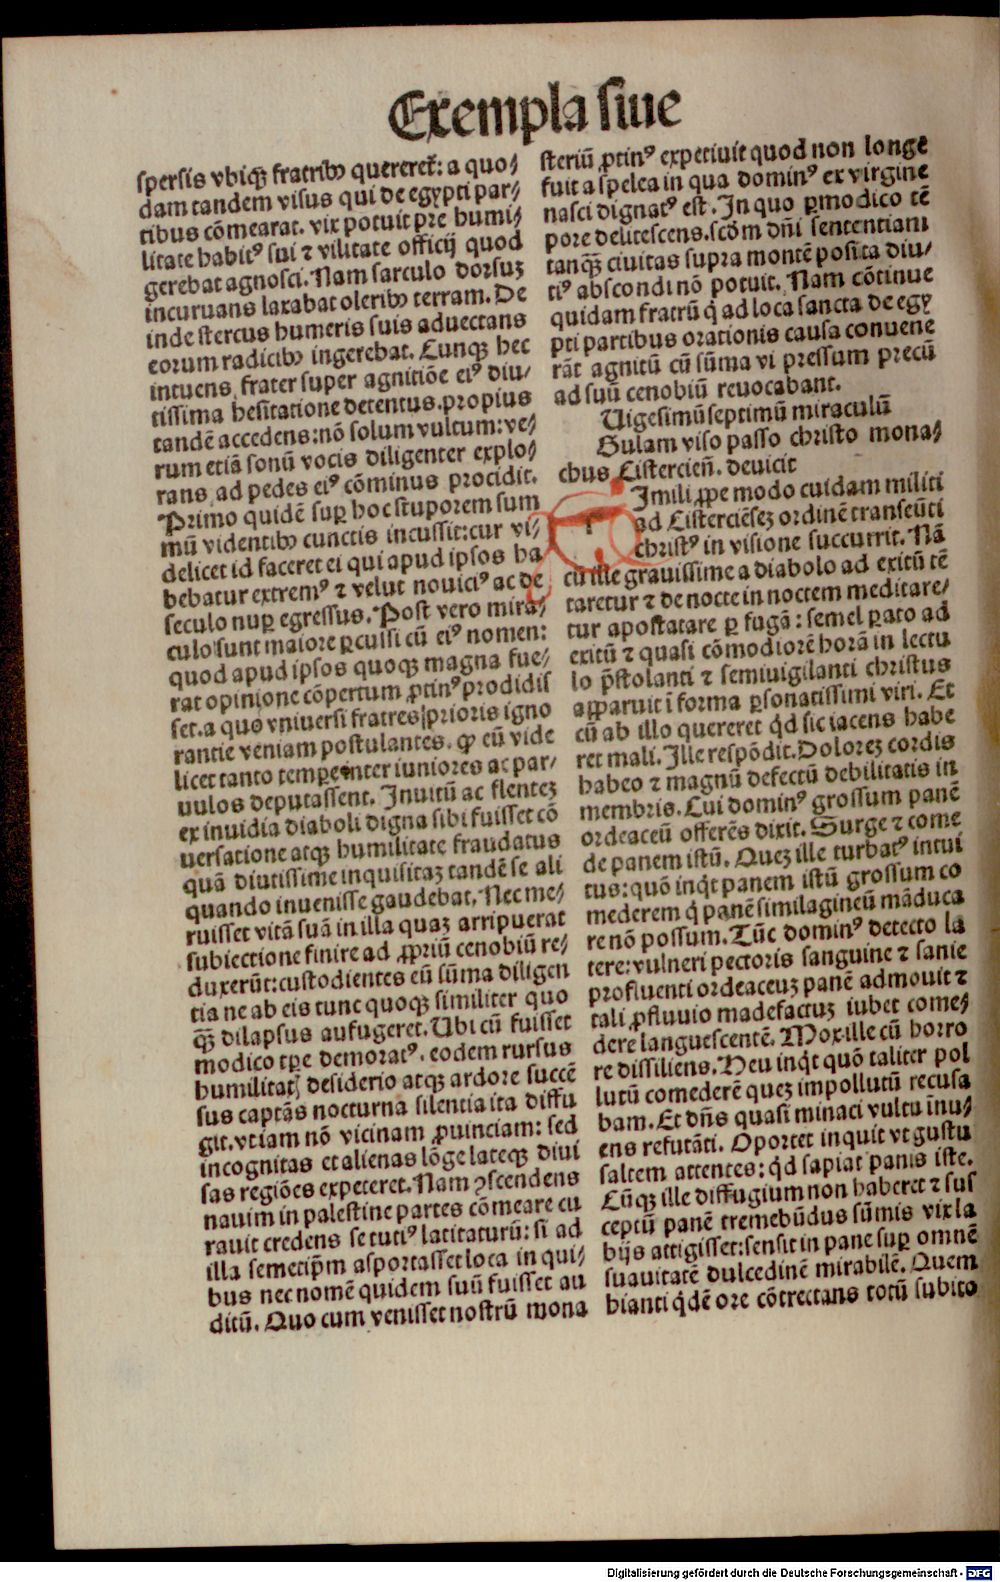 Exempla siue
spersis vbiqꝫ fratribꝰ quereret̃: a quo⸗
dam tandem visus qui de egypti par⸗
tibus cõmearat. vix potuit pre humi⸗
litate habitꝰ sui ⁊ vilitate officij quod
gerebat agnosci. Nam sarculo dorsuꝫ
incuruans laxabat oleribꝰ terram. De
inde stercus humeris suis aduectans
eorum radicibꝰ ingerebat. Cunqꝫ hec
intuens frater super agnitiõe eiꝰ diu⸗
tissima hesitatione detentus. propius
tandẽ accedens: nõ solum vultum: ve⸗
rum etiã sonũ vocis diligenter explo⸗
rans ad pedes eiꝰ cõminus procidit.
Primo quidẽ suꝑ hoc stuporem sum
mũ videntibꝰ cunctis incussit: cur vi⸗
delicet id faceret ei qui apud ipsos ha
bebatur extremꝰ ⁊ velut nouiciꝰ ac de
seculo nuꝑ egressus. Post vero mira⸗
culo sunt maiore ꝑcussi cũ eiꝰ nomen:
quod apud ipsos quoqꝫ magna fue⸗
rat opinione cõpertum ꝓtinꝰ prodidis
set. a quo vniuersi fratres prioris igno
rantie veniam postulantes. ꝙ eũ vide
licet tanto tempore inter iuniores ac par⸗
uulos deputassent. Inuitũ ac flenteꝫ
ex inuidia diaboli digna sibi fuisset cõ
uersatione atqꝫ humilitate fraudatus
quã diutissime inquisitaꝫ tandẽ se ali
quando inuenisse gaudebat. Nec me⸗
ruisset vitã suã in illa quaꝫ arripuerat
subiectione finire ad ꝓpriũ cenobiũ re⸗
duxerũt: custodientes eũ sũma diligen
tia ne ab eis tunc quoqꝫ similiter quo
qꝫ̃ dilapsus aufugeret. Ubi cũ fuisset
modico tꝑe demoratꝰ. eodem rursus
humilitatꝭ desiderio atqꝫ ardore succẽ
sus captãs nocturna silentia ita diffu
git. vt iam nõ vicinam ꝓuinciam: sed
incognitas et alienas lõge lateqꝫ diui
sas regiões expeteret. Nam ꝯscendens
nauim in palestine partes cõmeare cu
rauit credens se tutiꝰ latitaturũ: si ad
illa semetip̃m asportasset loca in qui⸗
bus nec nomẽ quidem suũ fuisset au
ditũ. Quo cum venisset nostrũ mona
steriũ ꝓtinꝰ expetiuit quod non longe
fuit a spelea in qua dominꝰ ex virgine
nasci dignatꝰ est. In quo ꝑmodico tẽ
pore delitescens. scd̃m dñi sententiam
tanqꝫ̃ ciuitas supra montẽ posita diu⸗
tiꝰ abscondi nõ potuit. Nam cõtinue
quidam fratrũ q̇ ad loca sancta de egy
pti partibus orationis causa conuene
rãt agnitũ cũ sũma vi pressum precũ
ad suũ cenobiũ reuocabant.
Uigesimũ septimũ miraculũ
Gulam viso passo christo mona⸗
chus Cistercieñ. deuicit
Imili ꝓpe modo cuidam militi
ad Cisterciẽseꝫ ordinẽ transeũti
christꝰ in visione succurrit. Nã
cũ ille grauissime a diabolo ad exitũ tẽ
taretur ⁊ de nocte in noctem meditare⸗
tur apostatare ꝑ fugã: semel ꝑato ad
exitũ ⁊ quasi cõmodiorẽ horã in lectu
lo p̃stolanti ⁊ semiuigilanti christus
apparuit ĩ forma ꝑsonatissimi viri. Et
cũ ab illo quereret q̇d sic iacens habe
ret mali. Ille respõdit. Doloreꝫ cordis
habeo ⁊ magnũ defectũ debilitatis in
membris. Cui dominꝰ grossum panẽ
ordeaceũ offerẽs dixit. Surge ⁊ come
de panem istũ. Queꝫ ille turbatꝰ intui
tus: quõ inq̇t panem istũ grossum co
mederem q̇ panẽ similagineũ mãduca
re nõ possum. Tũc dominꝰ detecto la
tere: vulneri pectoris sanguine ⁊ sanie
profluenti ordeaceuꝫ panẽ admouit ⁊
tali ꝓfluuio madefactuꝫ iubet come⸗
dere languescentẽ. Mox ille cũ horro
re dissiliens. Heu inq̇t quõ taliter pol
lutũ comederẽ queꝫ impollutũ recusa
bam. Et dñs quasi minaci vultu ĩnu⸗
ens refutãti. Oportet inquit vt gustu
saltem attentes: q̇d sapiat panis iste.
Cũqꝫ ille diffugium non haberet ⁊ sus
ceptũ panẽ tremebũdus sũmis vix la
bijs attigisset: sensit in pane suꝑ omnẽ
suauitatẽ dulcedinẽ mirabilẽ. Quem
hianti q̇dẽ ore cõtrectans totũ subito
Digitalisierung gefördert durch die Deutsche Forschungsgemeinschaft - DFG